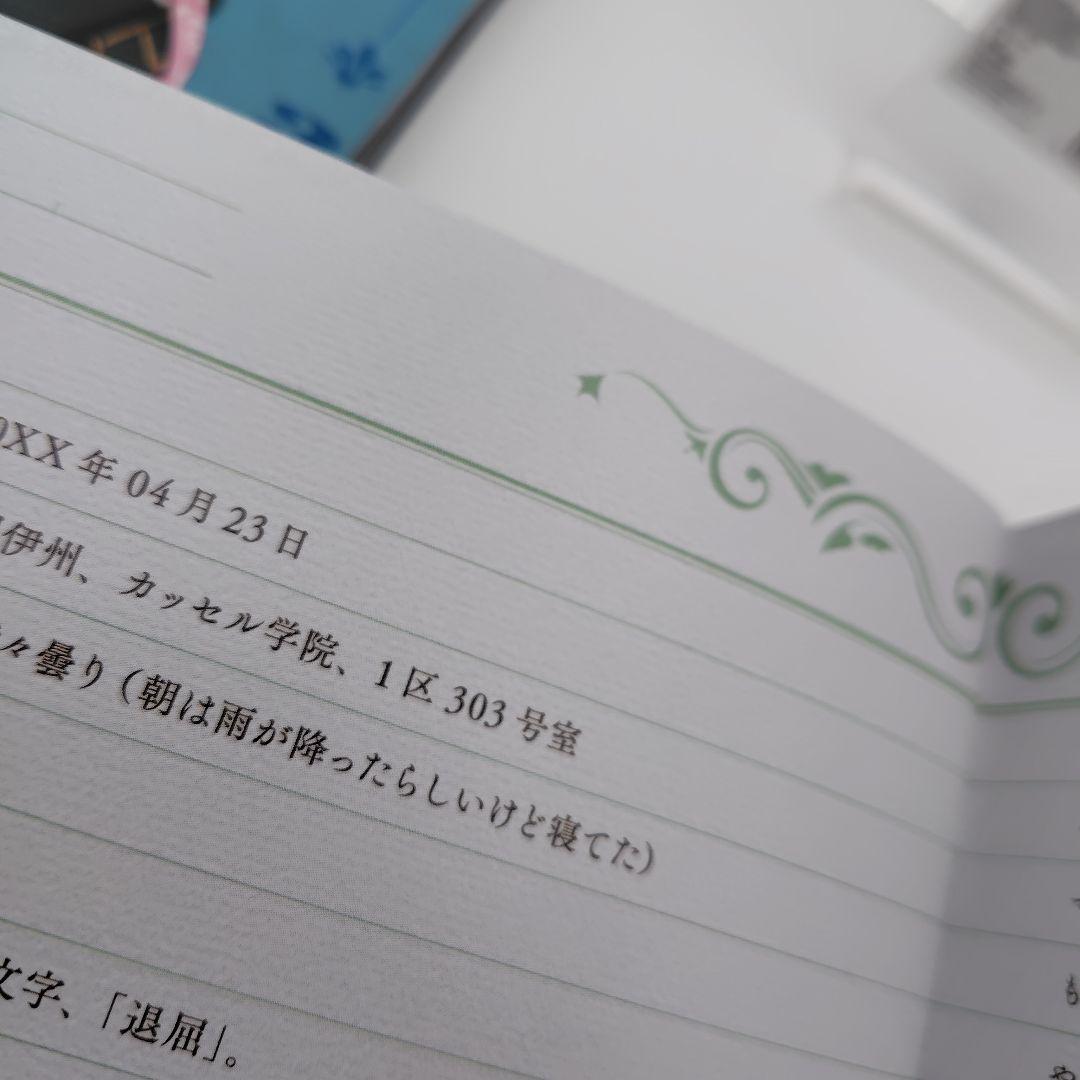 0XX 年 04 月 23 日
伊州、カッセル学院、1 区 303 号室
々曇り（朝は雨が降ったらしいけど寝てた）
文字、「退屈」。
も
や